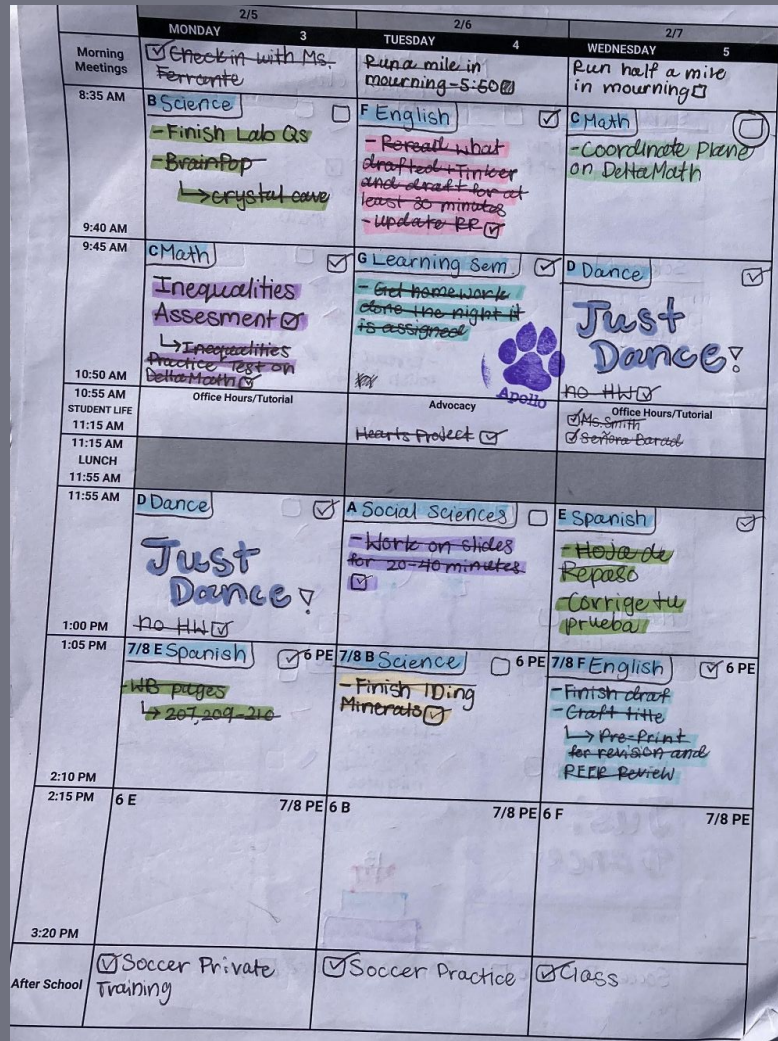 2/5 2/6 2/7
MONDAY 3 TUESDAY 4 WEDNESDAY 5
Morning
Meetings
Check in with Ms.
Ferrante
Run a mile in
mourning-5:50
Run half a mile
in mourning
8:35 AM
9:40 AM
B Science
-Finish Lab Qs
-BrainPop
↳crystal cave
F English
-Reread what
drafted+Tinker
and draft for at
least 30 minutes
-update RR
C Math
-Coordinate Plane
on DeltaMath
9:45 AM
10:50 AM
C Math
Inequalities
Assesment
↳Inequalities
Practice Test on
DeltaMath
G Learning Sem.
-Get homework
done the night it
is assigned
Apollo
D Dance
Just
Dance!
no HW
10:55 AM
STUDENT LIFE
11:15 AM
Office Hours/Tutorial
Advocacy
Hearts Project
Office Hours/Tutorial
Ms. Smith
Señora Barad
11:15 AM
LUNCH
11:55 AM
11:55 AM
1:00 PM
D Dance
Just
Dance!
no HW
A Social Sciences
-Work on slides
for 20-40 minutes
E Spanish
-Hoja de
Repaso
-Corrige tu
prueba
1:05 PM
2:10 PM
7/8 E Spanish 6 PE
-WB pages
↳207,209-210
7/8 B Science 6 PE
-Finish IDing
Minerals
7/8 F English 6 PE
-Finish draf
-Craft title
↳Pre-Print
for revision and
PEER Review
2:15 PM
3:20 PM
6 E 7/8 PE
6 B 7/8 PE
6 F 7/8 PE
After School
Soccer Private
Training
Soccer Practice
Class